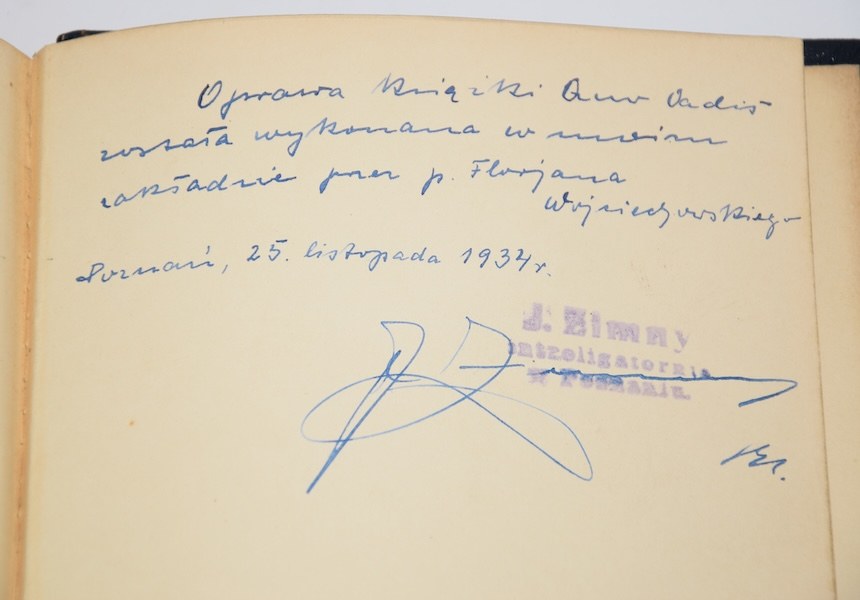 Oprawa książki Quo Vadis
została wykonana w moim
zakładzie przez p. Florjana
Wojciechowskiego
Poznań, 25. listopada 1934 r.
J. Zimny
introligatornia
w Poznaniu.